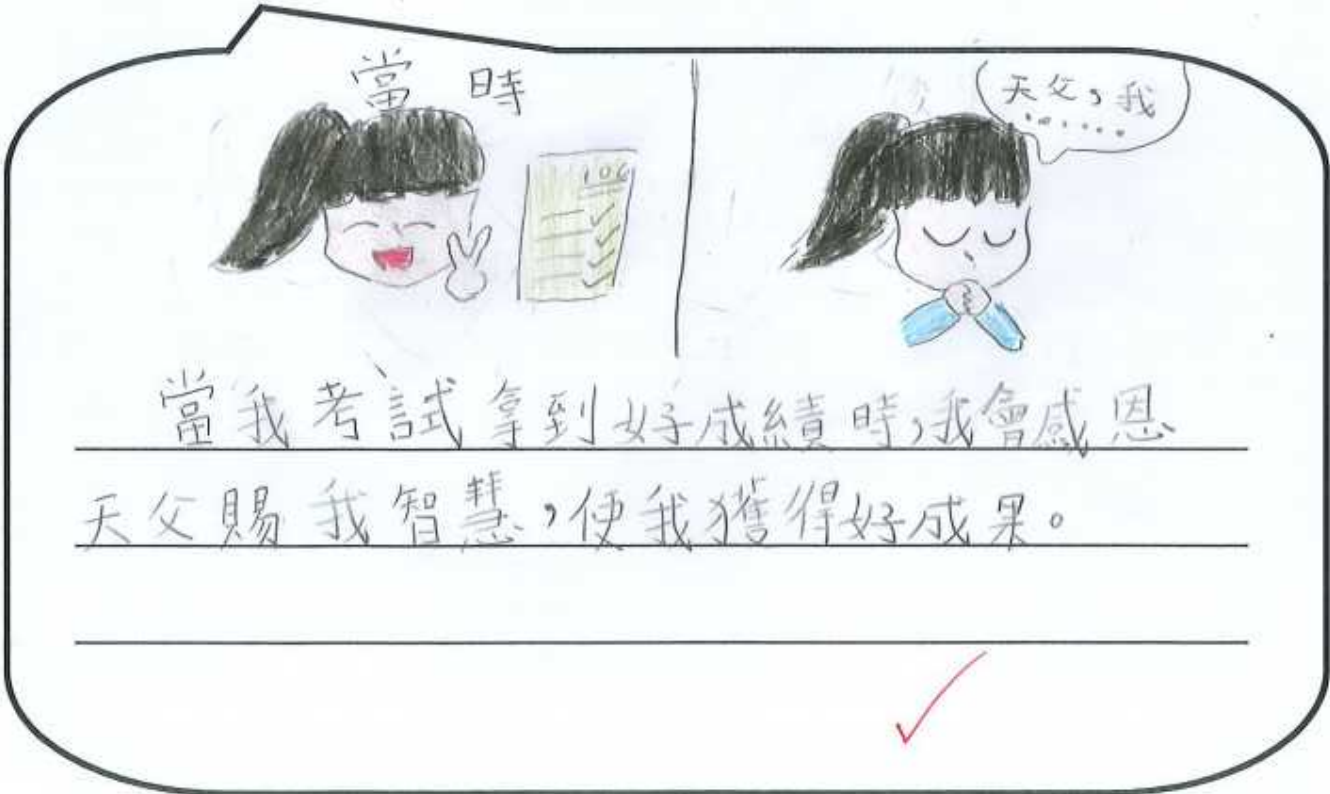 當時
天父，我
……
100
當我考試拿到好成績時，我會感恩
天父賜我智慧，使我獲得好成果。